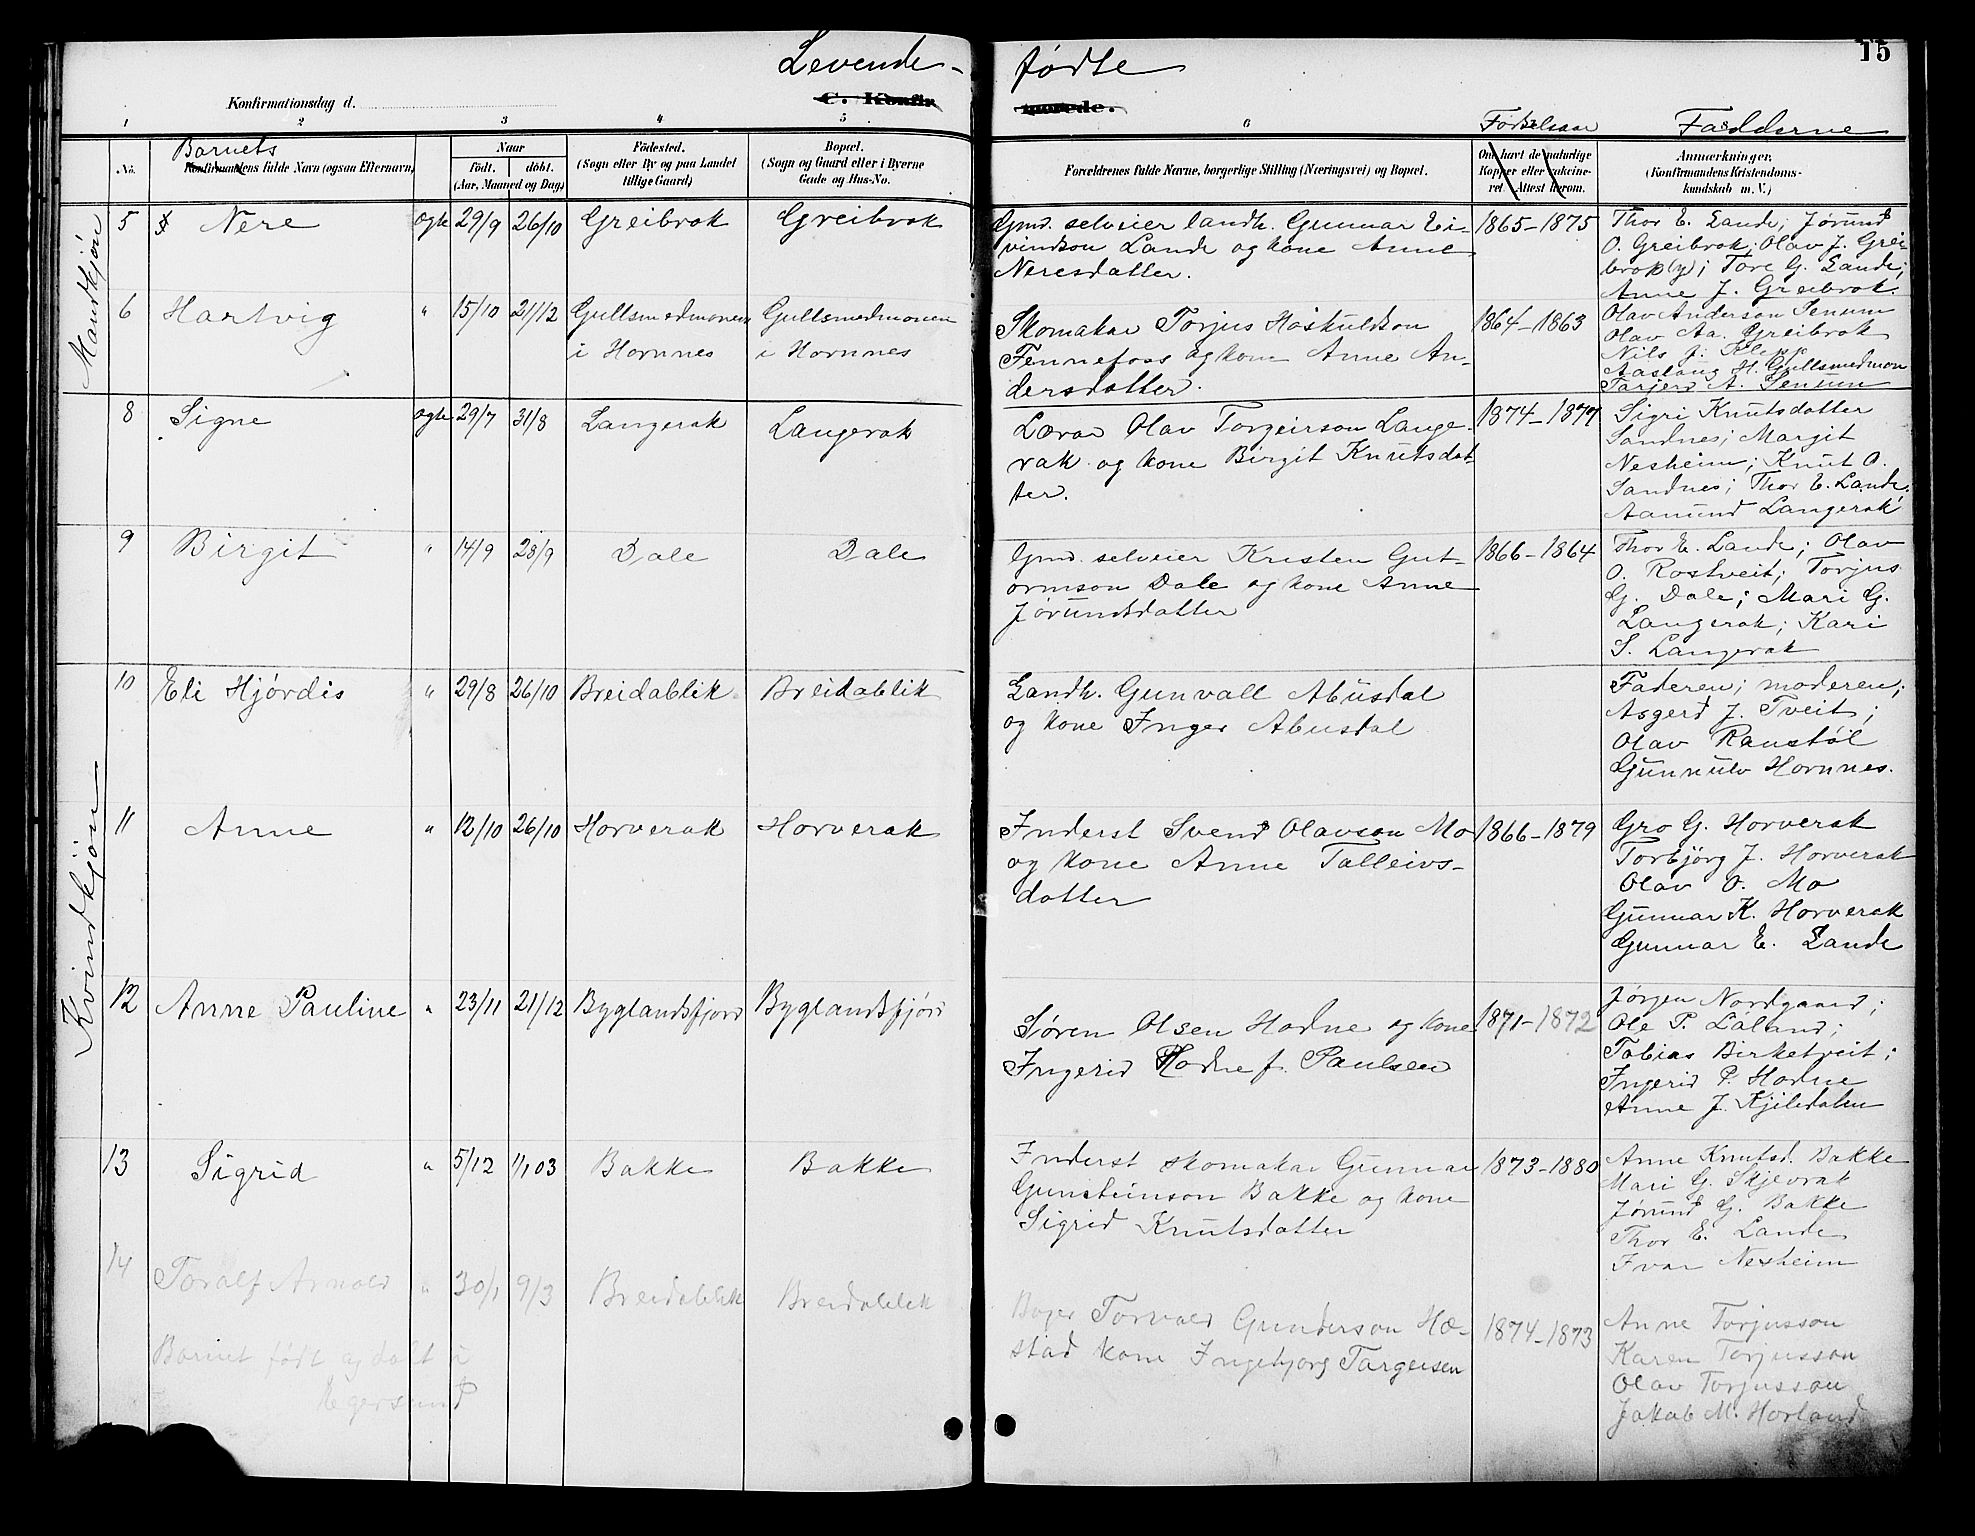 Levende-
fødte
15
Konfirmationsdag d.
C. Konfir
merede.
1
2
3
4
5
6
Fødselsaar
Fadderne
No.
Barnets
Konfirmandens fulde Navn (ogsaa Efternavn)
Naar
født. døbt.
(Aar, Maaned og Dag)
Fødested.
(Sogn eller By og paa Landet
tillige Gaard)
Bopæl.
(Sogn og Gaard eller i Byerne
Gade og Hus-No.
Forældrenes fulde Navne, borgerlige Stilling (Næringsvei) og Bopæl.
Om havt de naturlige
Kopper eller vakcine-
ret. Attest herom.
Anmærkninger.
(Konfirmandens Kristendoms-
kundskab m. V.)
Mandkjøn
5 Nere ogte 29/9 26/10 Greibrok Greibrok
Gmd. selveier landh. Gunnar Ei-
vindson Lande og kone Anne
Neresdatter.
1865-1875
Thor E. Lande; Jørund
O. Greibrok; Olav J. Grei
brok (y); Tore G. Lande;
Anne J. Greibrok.
6 Hartvig " 15/10 21/12 Gullsmedmonen Gullsmedmonen
i Hornnes i Hornnes
Skomakar Torjus Høskuldson
Fennefoss og kone Anne An-
dersdatter.
1864-1863
Olav Anderson Senum
Olav Aa. Greibrok
Nils J. Klepp
Aaslaug H. Gullsmedmon
Tarjerd A. Senum
8 Signe ogte 29/7 31/8 Langerak Langerak
Lærar Olav Torgeirson Lange-
rak og kone Birgit Knutsdat-
ter.
1874-1877
Sigri Knutsdatter
Sandnes; Margit
Nesheim; Knut O.
Sandnes; Thor E. Lande.
Aanund Langerak
Kvindkjøn
9 Birgit " 14/9 28/9 Dale Dale
Gmd. selveier Kristen Gut-
ormson Dale og kone Anne
Jørundsdatter
1866-1864
Thor E. Lande; Olav
O. Rostveit; Torjus
G. Dale; Mari G.
Langerak; Kari
S. Langerak
10 Eli Hjørdis " 29/8 26/10 Breidablik Breidablik
Landh. Gunvall Abusdal
og kone Inger Abusdal
Faderen; moderen;
Asgerd J. Tveit;
Olav Ranstøl
Gunnulv Hornnes.
11 Anne " 12/10 26/10 Horverak Horverak
Inderst Svend Olavson Mo
og kone Anne Talleivs-
datter
1866-1879
Gro G. Horverak
Torbjørg J. Horverak
Olav O. Mo
Gunnar K. Horverak
Gunnar E. Lande
12 Anne Pauline " 23/11 21/12 Byglandsfjord Byglandsfjord
Søren Olsen Hodne og kone
Ingerid Hodne f. Paulsen
1871-1872
Jørgen Nordgaard;
Ole P. Løland;
Tobias Birketveit;
Ingerid P. Hodne
Anne J. Kjiledalen
13 Sigrid " 5/12 1/1 03 Bakke Bakke
Inderst skomakar Gunnar
Gunsteinson Bakke og kone
Sigrid Knutsdatter
1873-1880
Anne Knutsd. Bakke
Mari G. Skjevrak
Jørund G. Bakke
Thor E. Lande
Ivar Nesheim
14 Toralf Arnold " 30/1 9/3 Breidablik Breidablik
Barnet født og døbt i
Egersund
Torvald Gunderson Hæ-
stad kone Ingebjorg Targeisen
1874-1873
Anne Torjusson
Karen Torjusson
Olav Torjusson
Jakob M. Horland